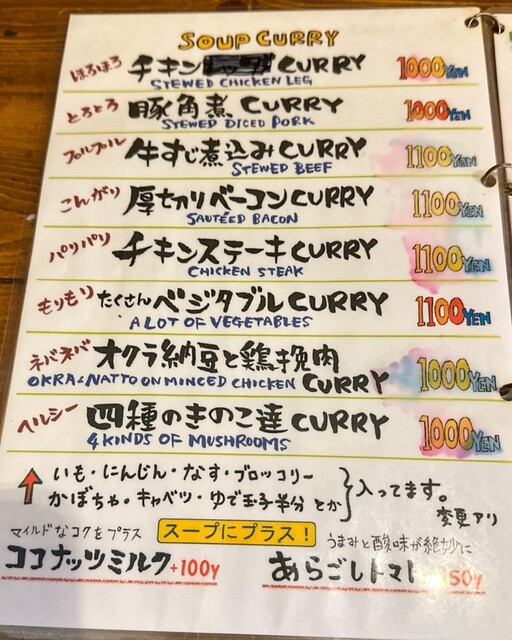 SOUP CURRY
ほろほろ チキン CURRY 1000YEN
STEWED CHICKEN LEG
とろとろ 豚角煮 CURRY 1000YEN
STEWED DICED PORK
プルプル 牛すじ煮込みCURRY 1100YEN
STEWED BEEF
こんがり 厚切りベーコンCURRY 1100YEN
SAUTÉED BACON
パリパリ チキンステーキCURRY 1100YEN
CHICKEN STEAK
もりもり たくさんベジタブルCURRY 1100YEN
A LOT OF VEGETABLES
ネバネバ オクラ納豆と鶏挽肉
OKRA & NATTO ON MINCED CHICKEN CURRY 1000YEN
ヘルシー 四種のきのこ達CURRY 1000YEN
4 KINDS OF MUSHROOMS
いも・にんじん・なす・ブロッコリー
かぼちゃ・キャベツ・ゆで玉子半分 とか 入ってます。
変更アリ
マイルドなコクをプラス スープにプラス! うまみと酸味が絶妙に
ココナッツミルク+100y あらごしトマト 50y